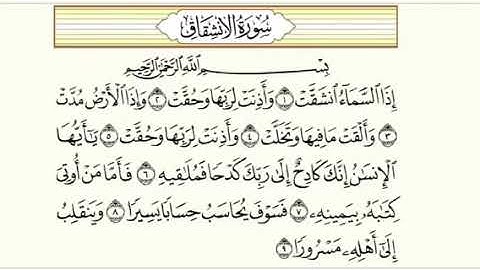 سُورَةُ الِانشِقَاقِ
بِسْمِ اللَّهِ الرَّحْمَٰنِ الرَّحِيمِ
إِذَا السَّمَاءُ انشَقَّتْ ١ وَأَذِنَتْ لِرَبِّهَا وَحُقَّتْ ٢ وَإِذَا الْأَرْضُ مُدَّتْ
٣ وَأَلْقَتْ مَا فِيهَا وَتَخَلَّتْ ٤ وَأَذِنَتْ لِرَبِّهَا وَحُقَّتْ ٥ يَا أَيُّهَا
الْإِنسَانُ إِنَّكَ كَادِحٌ إِلَىٰ رَبِّكَ كَدْحًا فَمُلَاقِيهِ ٦ فَأَمَّا مَنْ أُوتِيَ
كِتَابَهُ بِيَمِينِهِ ٧ فَسَوْفَ يُحَاسَبُ حِسَابًا يَسِيرًا ٨ وَيَنقَلِبُ
إِلَىٰ أَهْلِهِ مَسْرُورًا ٩